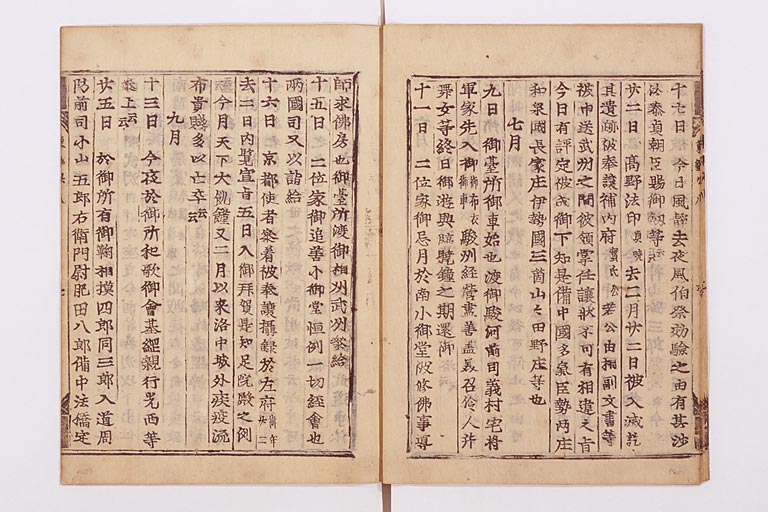 十七日 今日風静去夜風伯祭効験之由有其沙
汰泰貞朝臣賜御釼等云々
廿二日 高野法印 去二月廿二日被入滅訖
其遺跡被奉譲補内府 若公由相副文書等
被申送武州之間被領掌任譲状不可有相違之旨
今日有評定被成御下知是備中國多氣巨勢両庄
和泉國長家庄伊勢國三箇山之田野庄等也
七月
九日 御臺所御車始也渡御駿河前司義村宅将
軍家先入御 駿州経営薫善盡義召伶人并
舞女等終日御遊興臨晩鐘之期還御
十一日 二位家御忌月於南小御堂被修佛事導
師求佛房也御臺所渡御相州武州參給
十五日 二位家御追善小御堂恒例一切経會也
両國司又以詣給
十六日 京都使者參着被奉讓攝録於左府
去二日内覧宣旨五日入御拜賀是知足院殿之例
云々今月天下大飢饉又二月以来洛中城外疾疫流
布貴賤多以亡卒云々
九月
十三日 今夜於御所和歌御會基綱親行光西等
參上云々
廿五日 於御所有御鞠相摸四郎同三郎入道周
防前司小山五郎右衛門尉肥田八郎備中法橋定